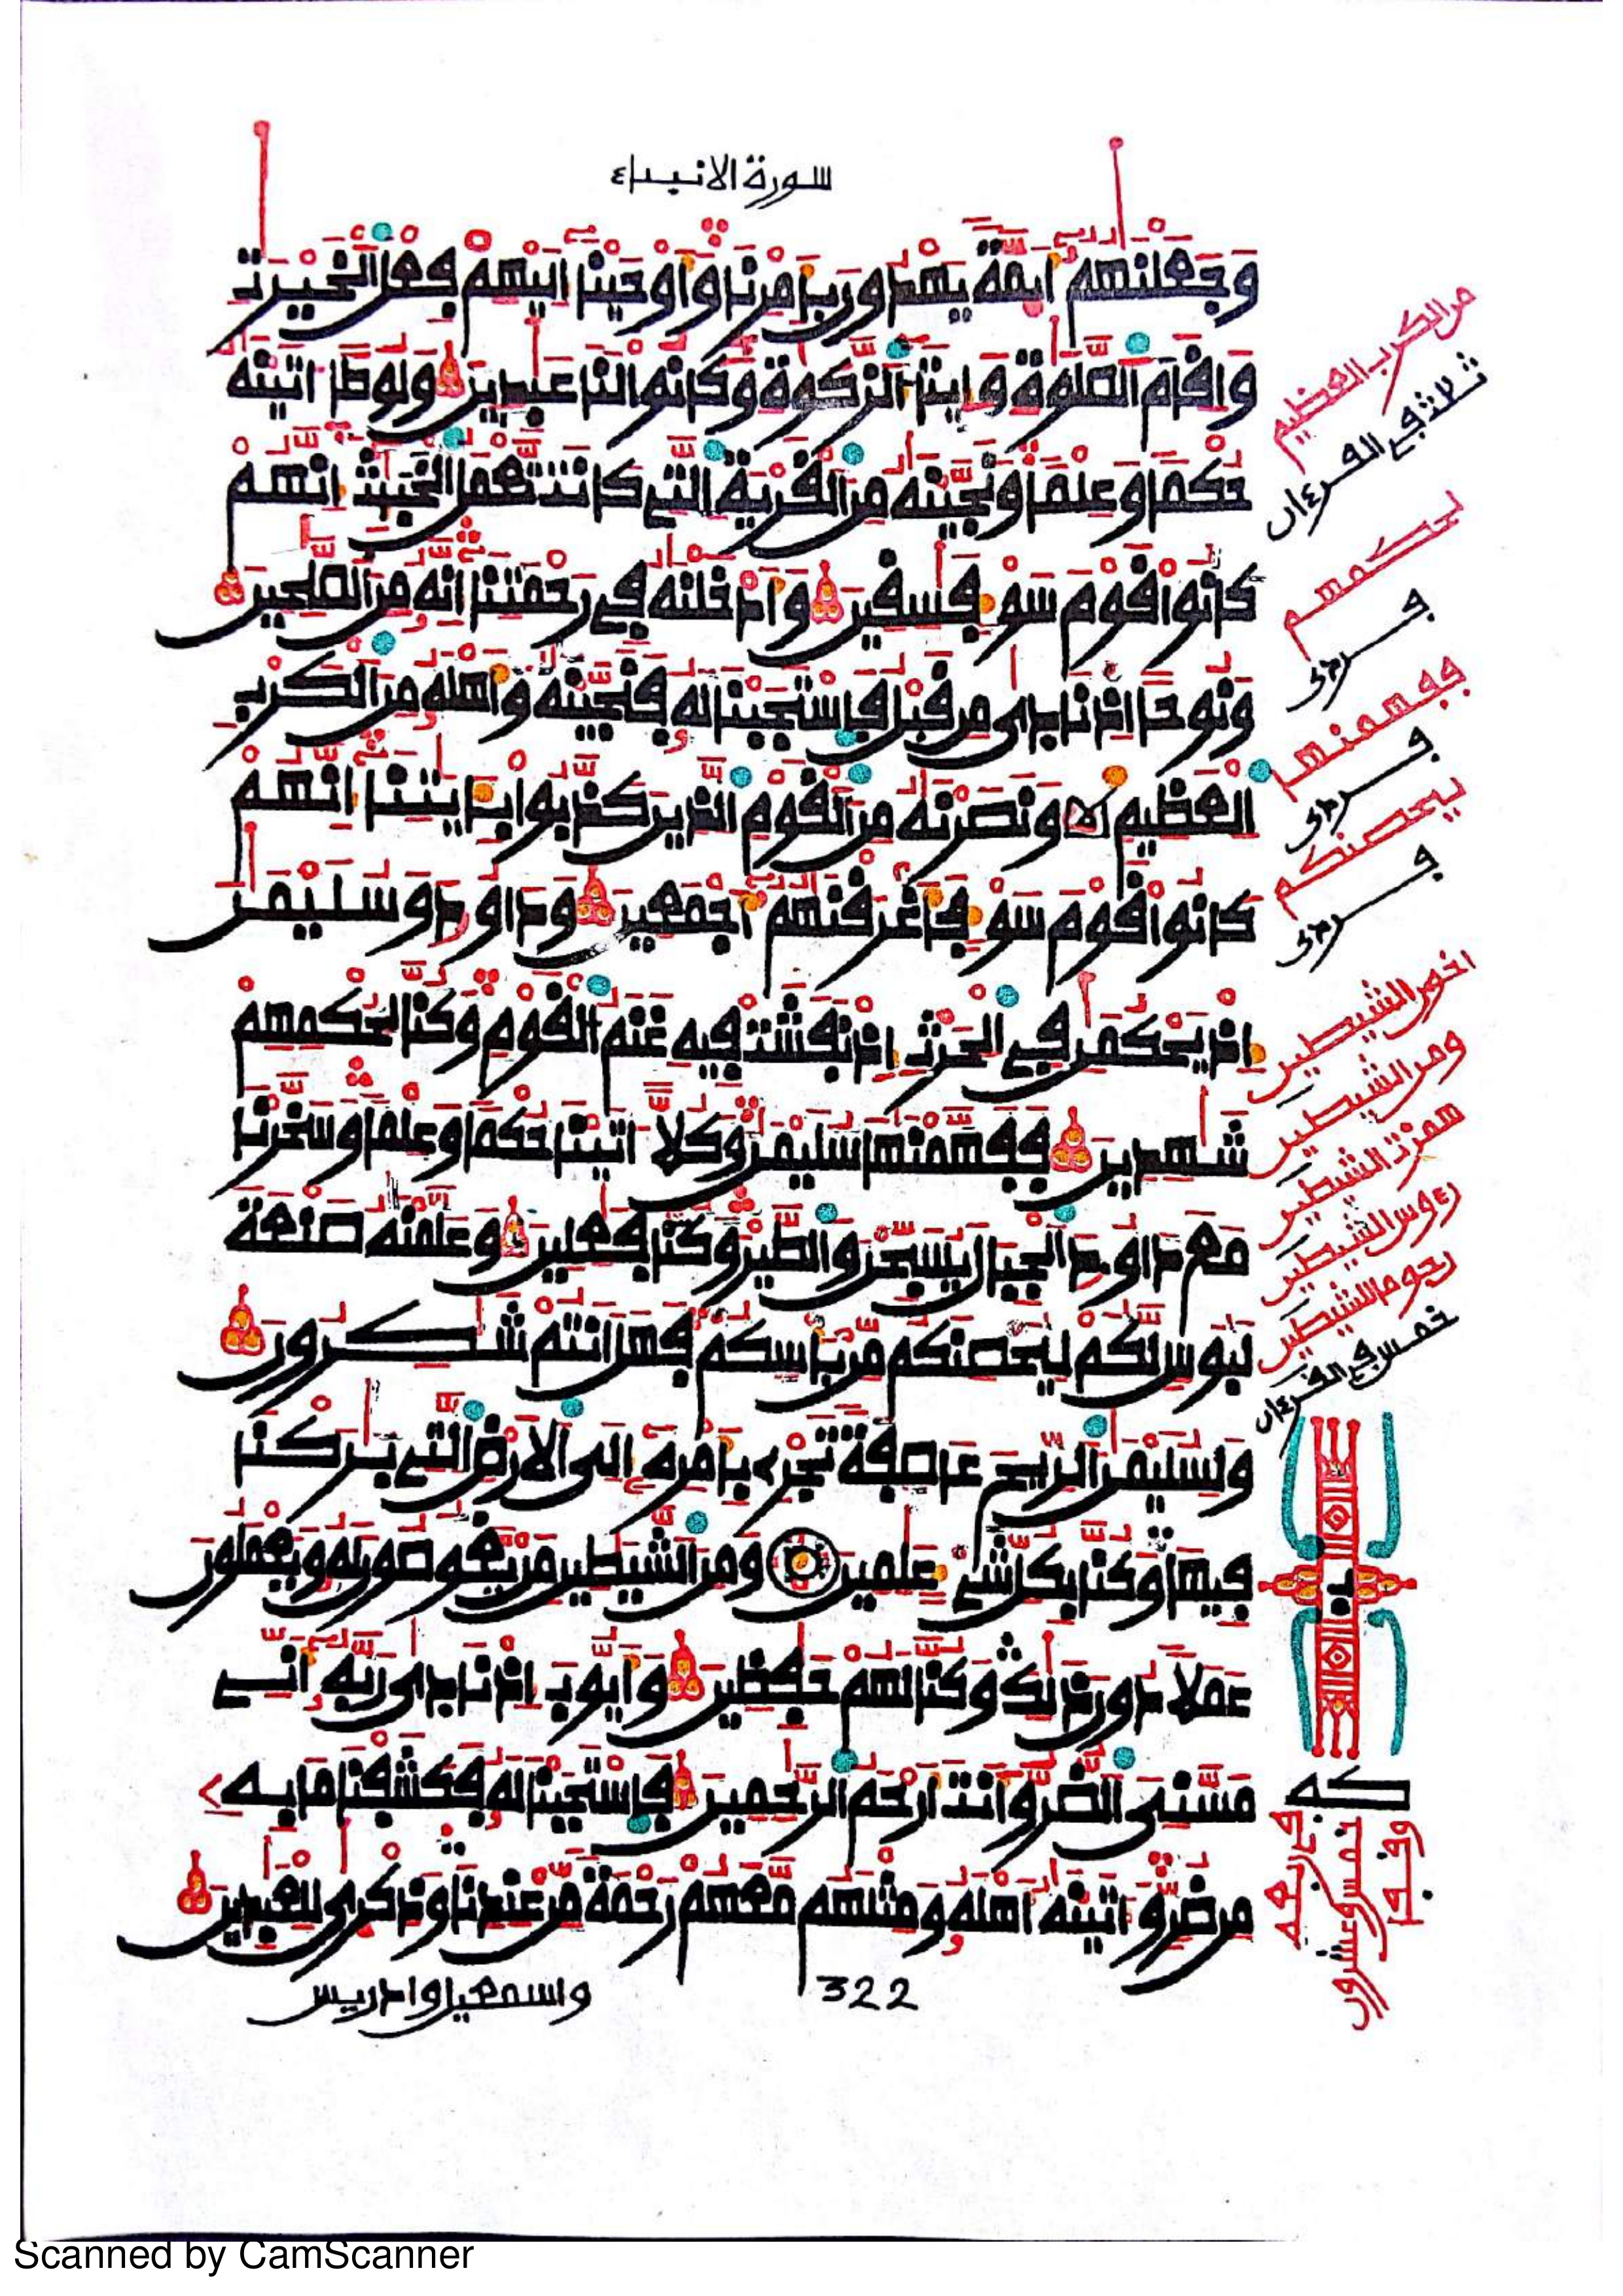 سورة الانبياء
وجعلنهم ايمة يهدون بامرنا واوحينا اليهم فعل الخيرت
واقام الصلوة وايتاء الزكوة وكانوا لنا عبدين ولوطا اتينه
حكما وعلما ونجينه من القرية التي كانت تعمل الخبيث انهم
كانوا قوم سوء فسقين وادخلنه في رحمتنا انه من الصلحين
ونوحا اذ نادى من قبل فاستجبنا له فنجينه واهله من الكرب
العظيم ونصرنه من القوم الذين كذبوا بايتنا انهم
كانوا قوم سوء فاغرقنهم اجمعين وداود وسليمن
اذ يحكمن في الحرث اذ نفشت فيه غنم القوم وكنا لحكمهم
شهدين ففهمنها سليمن وكلا اتينا حكما وعلما وسخرنا
مع داود الجبال يسبحن والطير وكنا فعلين وعلمنه صنعة
لبوس لكم ليحصنكم من باسكم فهل انتم شكرون
ولسليمن الريح عاصفة تجري بامره الى الارض التي بركنا
فيها وكنا بكل شيء علمين ومن الشيطين من يغوصون له ويعملون
عملا دون ذلك وكنا لهم حفظين وايوب اذ نادى ربه اني
مسني الضر وانت ارحم الرحمين فاستجبنا له فكشفنا ما به
من ضر واتينه اهله ومثلهم معهم رحمة من عندنا وذكرى للعبدين
واسمعيل وادريس
322
من الكرب العظيم
ثلاث في القرءان
ليحكمهم
فردى
ففهمنها
فردى
ليحصنكم
فردى
اخون الشيطين
ومن الشيطين
همزت الشيطين
رءوس الشيطين
رجوما للشيطين
خمس في القرءان
خمس وعشرون
Scanned by CamScanner